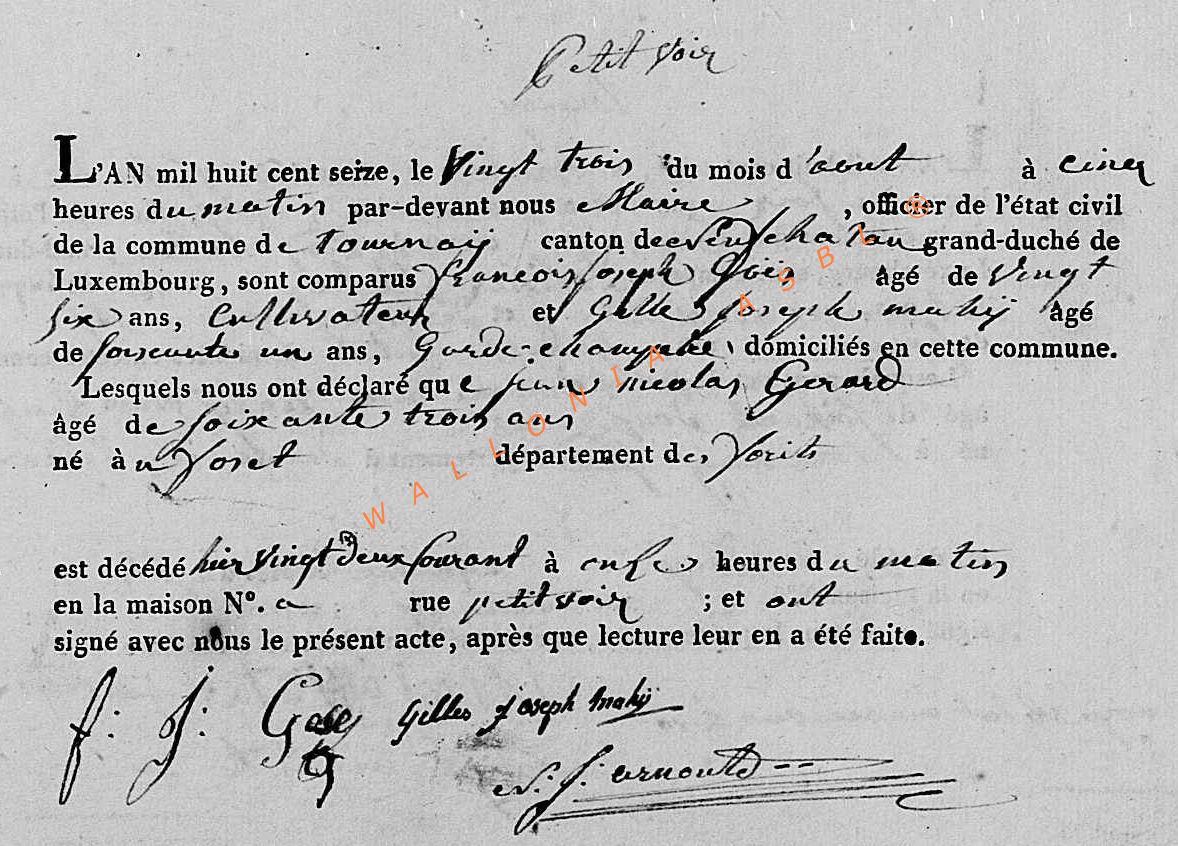 Petit voir
L'AN mil huit cent seize, le Vingt trois du mois d'aout à cinq
heures du matin par-devant nous Maire, officier de l'état civil
de la commune de tournaij canton de Neufchatau grand-duché de
Luxembourg, sont comparus francois Joseph âgé de Vingt
six ans, Cultivateur et Gilles Joseph mahij âgé
de soiscante un ans, Garde-champetre, domiciliés en cette commune.
Lesquels nous ont déclaré que jean nicolas Gerard
âgé de soixante trois ans
né à foret département des
est décédé hier Vingt deux Courant à onse heures du matin
en la maison N°. a rue petit voir ; et ont
signé avec nous le présent acte, après que lecture leur en a été faite.
f: J: Gilles joseph mahij
N: J: arnould
WALLONIA ASBL ®